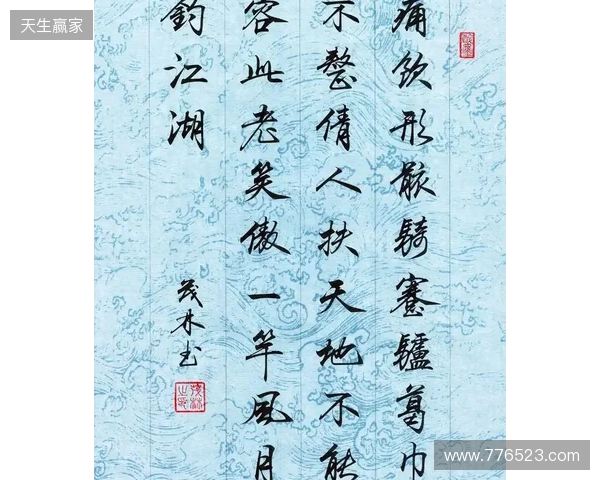 天生赢家
痛飲形骸騎蹇驢葛巾
不整倩人扶天地不能
容此老笑傲一竿風月
釣江湖
茂林书
www.776523.com